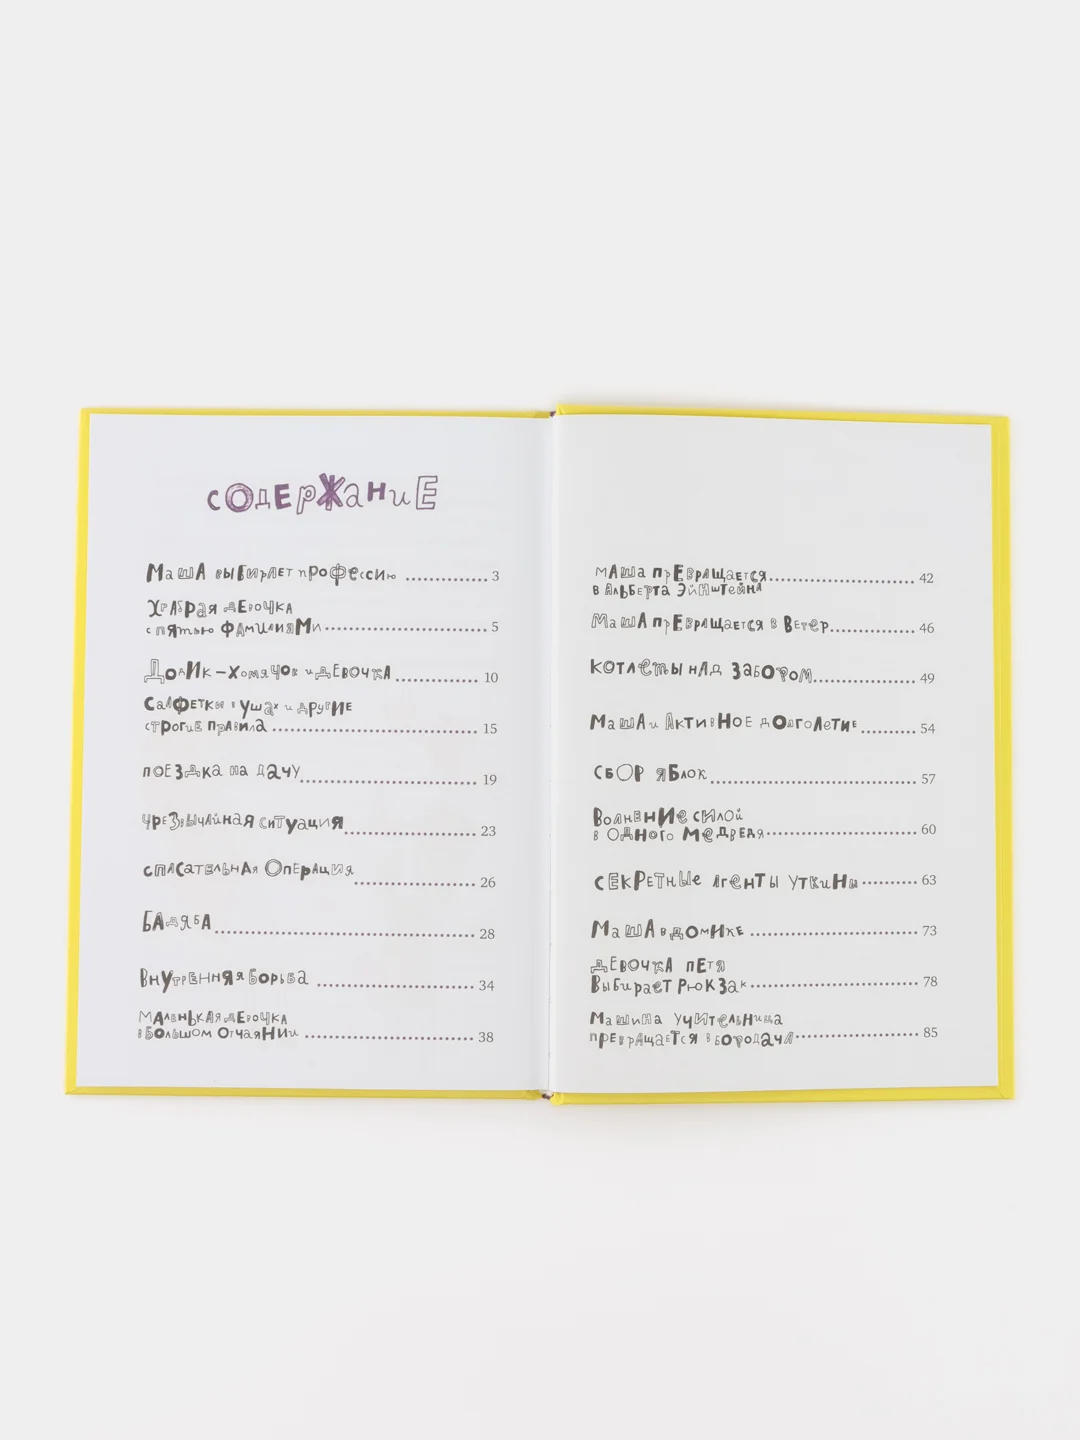 Содержание
Маша выбирает профессию 3
Храбрая девочка
с пятью фамилиями 5
Додик-хомячок и девочка 10
Салфетки в ушах и другие
строгие правила 15
Поездка на дачу 19
Чрезвычайная ситуация 23
Спасательная операция 26
Бадяба 28
Внутренняя борьба 34
Маленькая девочка
в большом отчаянии 38
Маша превращается
в Альберта Эйнштейна 42
Маша превращается в ветер 46
Котлеты над забором 49
Маша и активное долголетие 54
Сбор яблок 57
Волнение силой
в одного медведя 60
Секретные агенты Уткины 63
Маша в домике 73
Девочка Петя
выбирает рюкзак 78
Машина учительница
превращается в бородача 85